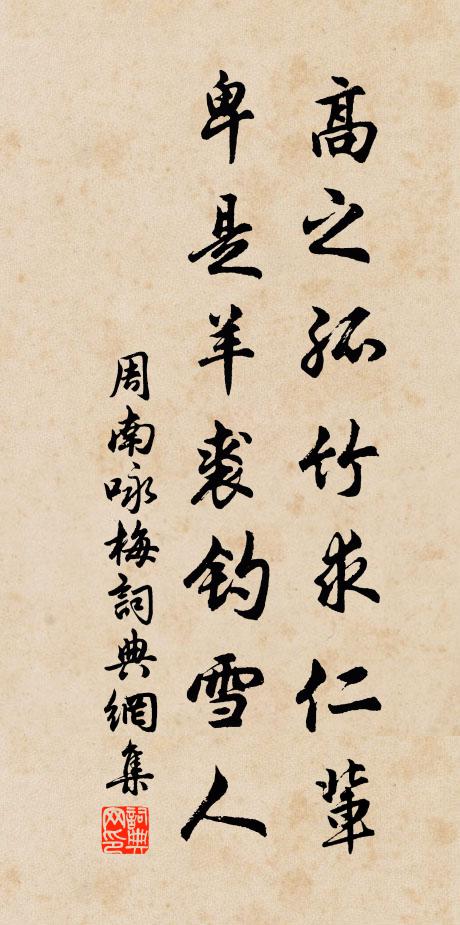 高之孤竹求仁輩
卑是羊裘釣雪人
周南咏梅詞典網集
詞典网印